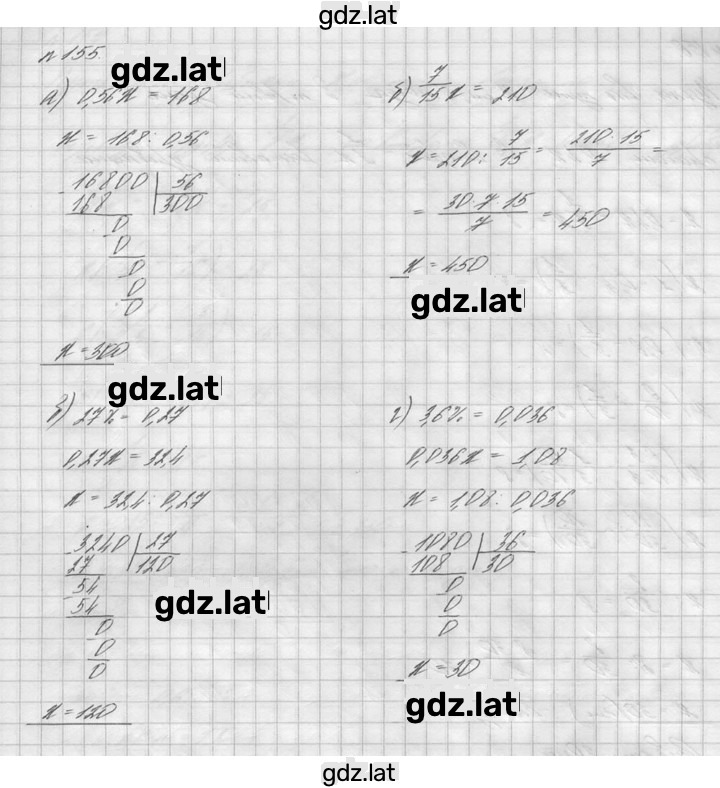 gdz.lat
n 155
gdz.lat
а) 0,56x = 168
x = 168 : 0,56
16800 | 56
168 | 300
0
0
0
0
0
x = 300
б) 7/15 x = 210
x = 210 : 7/15 = 210·15/7 =
= 30·7·15/7 = 450
x = 450
gdz.lat
gdz.lat
в) 27% = 0,27
0,27x = 32,4
x = 32,4 : 0,27
3240 | 27
27 | 120
54
54
0
0
0
x = 120
gdz.lat
г) 3,6% = 0,036
0,036x = 1,08
x = 1,08 : 0,036
1080 | 36
108 | 30
0
0
0
x = 30
gdz.lat
gdz.lat